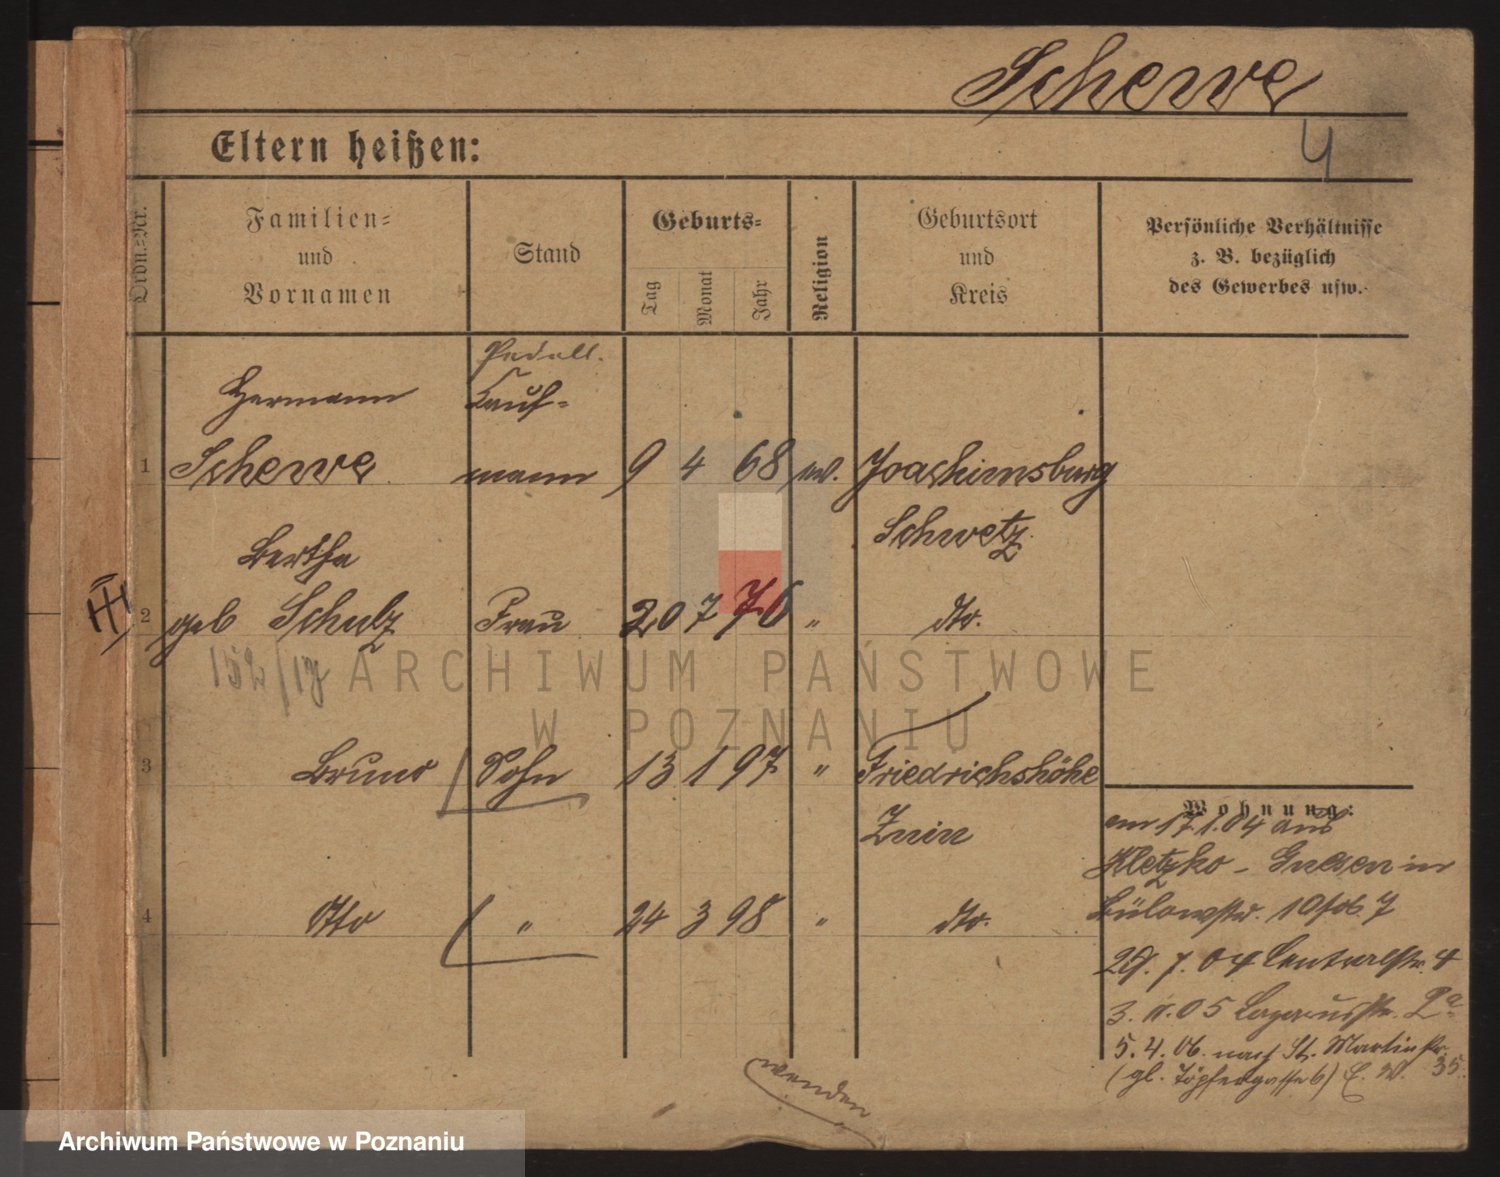 Schewe
4
Eltern heißen:
Ordn.=Nr.
Familien=
und
Vornamen
Stand
Geburts=
Tag
Monat
Jahr
Religion
Geburtsort
und
Kreis
Persönliche Verhältnisse
z. B. bezüglich
des Gewerbes usw.
Pedell.
Hermann Kauf=
1 Schewe mann 9 4 68 ev. Joachimsburg
Schwetz
Bertha
2 geb Schulz Frau 20 7 76 " dto.
ARCHIWUM PAŃSTWOWE
W POZNANIU
3 Bruno Sohn 13 1 97 " Friedrichshöhe
Znin
4 Otto " 24 3 98 " dto.
Wohnung:
am 17.1.04 aus
Kletzko - Gnesen in
Bülowstr. 10
29. 7. 04 Centralstr. 4
05
5. 4. 06. nach St. Martinstr.
(gl. Töpfergasse 6) E. W. 35.
wenden
III
Archiwum Państwowe w Poznaniu